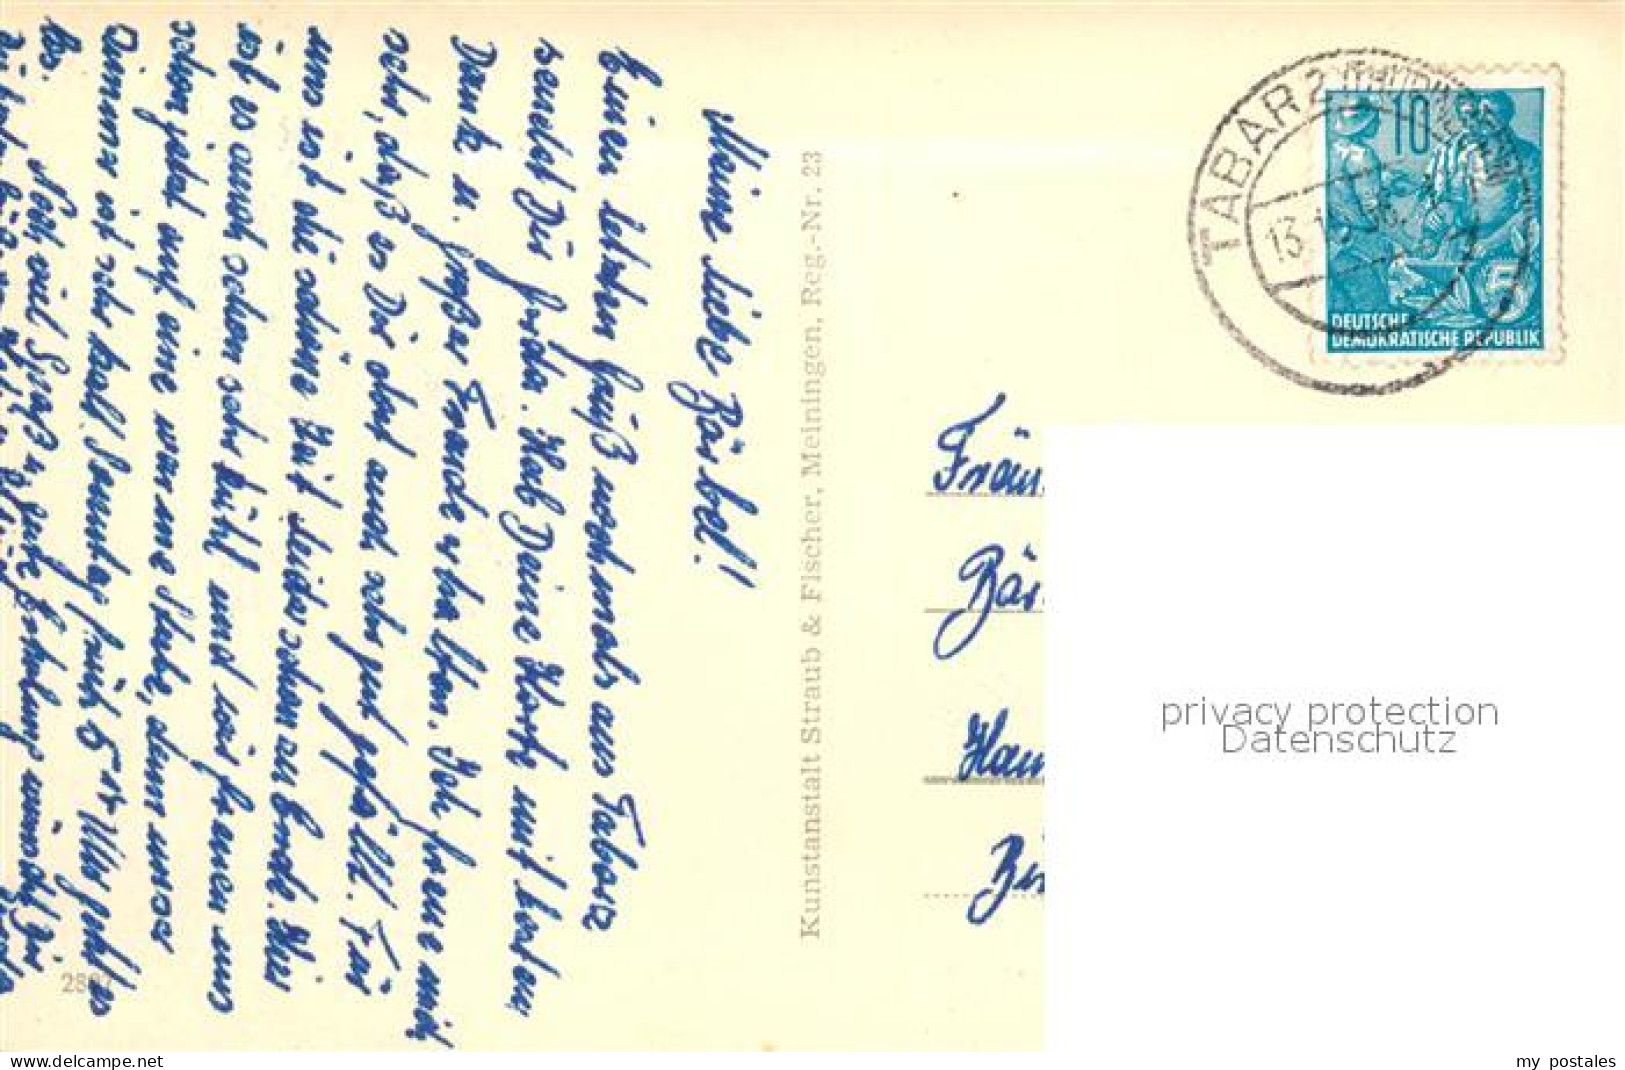 Meine liebe Bärbel!
Einen letzten Gruß nochmals aus Tabarz
sendet Dir Frieda. Hab Deine Karte mit besten
Dank u. großer Freude erhalten. Ich freue mich
sehr, daß es Dir dort auch sehr gut gefällt. Für
uns ist die schöne Zeit leider schon zu Ende. Hier
ist es auch schon sehr kühl und wir freuen uns
schon jetzt auf eine warme Stube, denn unser
Zimmer ist sehr kalt. Sonntag früh 5 Uhr geht es
los. Noch viel Spaß u. gute Erholung wünscht Dir
Kunstanstalt Straub & Fischer, Meiningen, Reg.-Nr. 23
TABARZ (THÜRINGEN)
10
5
DEUTSCHE
DEMOKRATISCHE REPUBLIK
privacy protection
Datenschutz
www.delcampe.net
my_postales